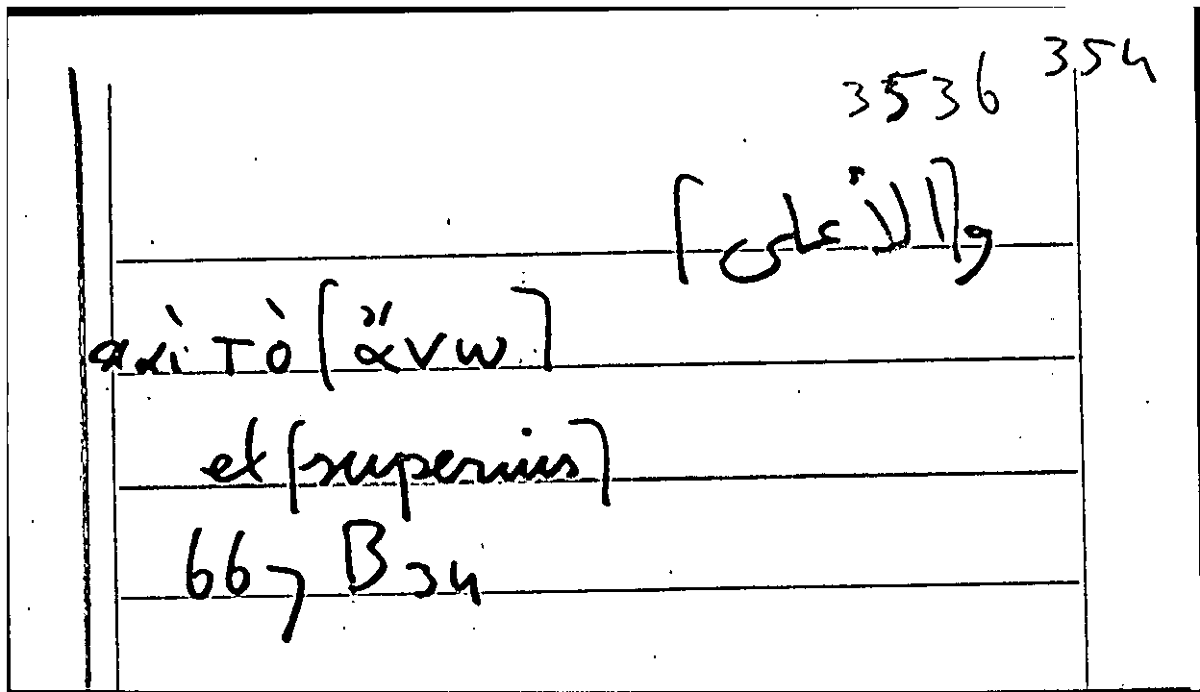 354
3536
و[الأعلى]
καὶ τὸ [ἄνω]
et [superius]
667 B 34